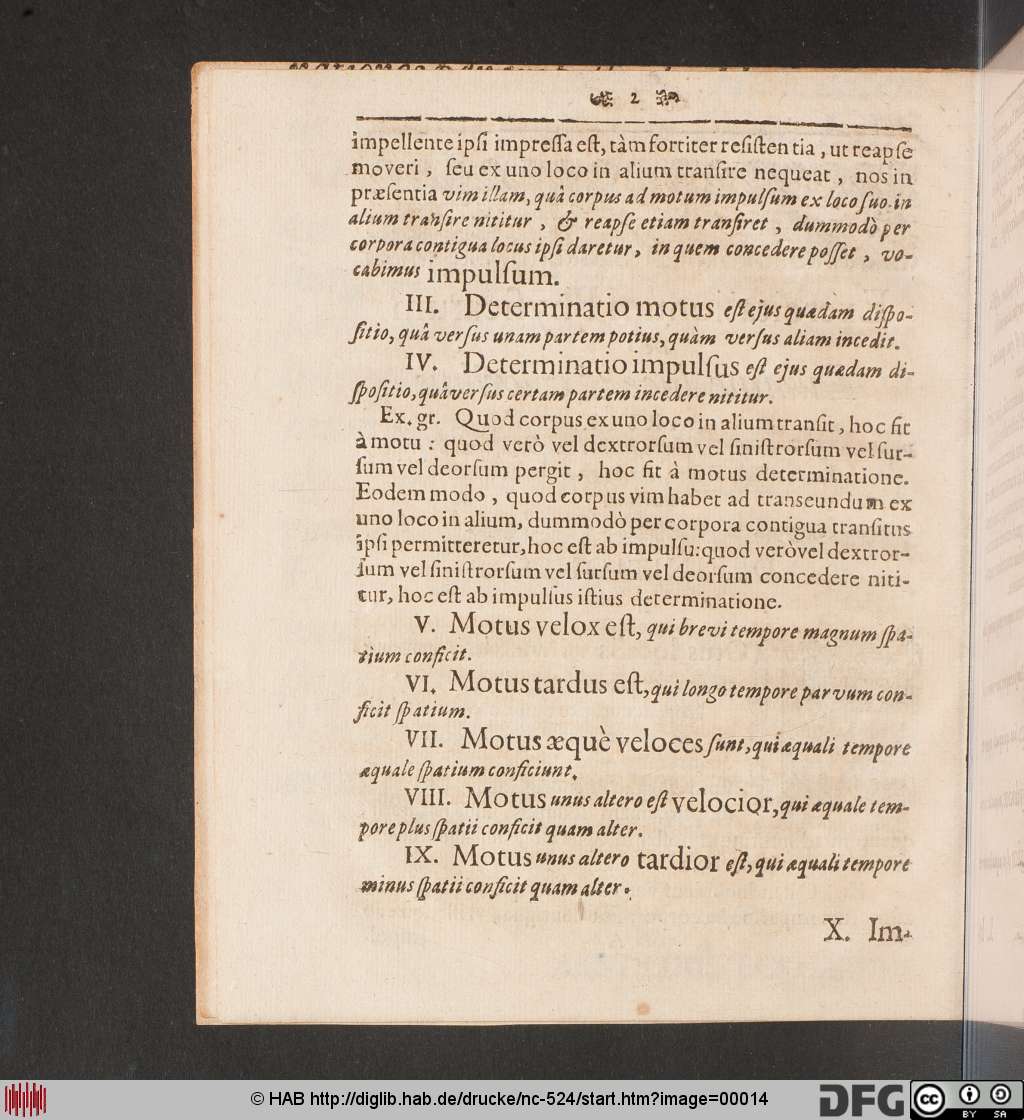 2
impellente ipsi impressa est, tàm fortiter resisten tia, ut reapse
moveri, seu ex uno loco in alium transire nequeat, nos in
præsentia vim illam, quâ corpus ad motum impulsum ex loco suo in
alium transire nititur, & reapse etiam transiret, dummodò per
corpora contigua locus ipsi daretur, in quem concedere posset, vo-
cabimus impulsum.
III. Determinatio motus est ejus quædam dispo-
sitio, quâ versus unam partem potius, quàm versus aliam incedit.
IV. Determinatio impulsus est ejus quædam di-
spositio, quâ versus certam partem incedere nititur.
Ex. gr. Quod corpus ex uno loco in alium transit, hoc fit
à motu: quod verò vel dextrorsum vel sinistrorsum vel sur-
sum vel deorsum pergit, hoc fit à motus determinatione.
Eodem modo, quod corpus vim habet ad transeundum ex
uno loco in alium, dummodò per corpora contigua transitus
ipsi permitteretur, hoc est ab impulsu: quod verò vel dextror-
sum vel sinistrorsum vel sursum vel deorsum concedere niti-
tur, hoc est ab impulsus istius determinatione.
V. Motus velox est, qui brevi tempore magnum spa-
tium conficit.
VI. Motus tardus est, qui longo tempore parvum con-
ficit spatium.
VII. Motus æquè veloces sunt, qui æquali tempore
æquale spatium conficiunt.
VIII. Motus unus altero est velocior, qui æquale tem-
pore plus spatii conficit quam alter.
IX. Motus unus altero tardior est, qui æquali tempore
minus spatii conficit quam alter.
X. Im-
© HAB http://diglib.hab.de/drucke/nc-524/start.htm?image=00014
DFG
cc
BY SA